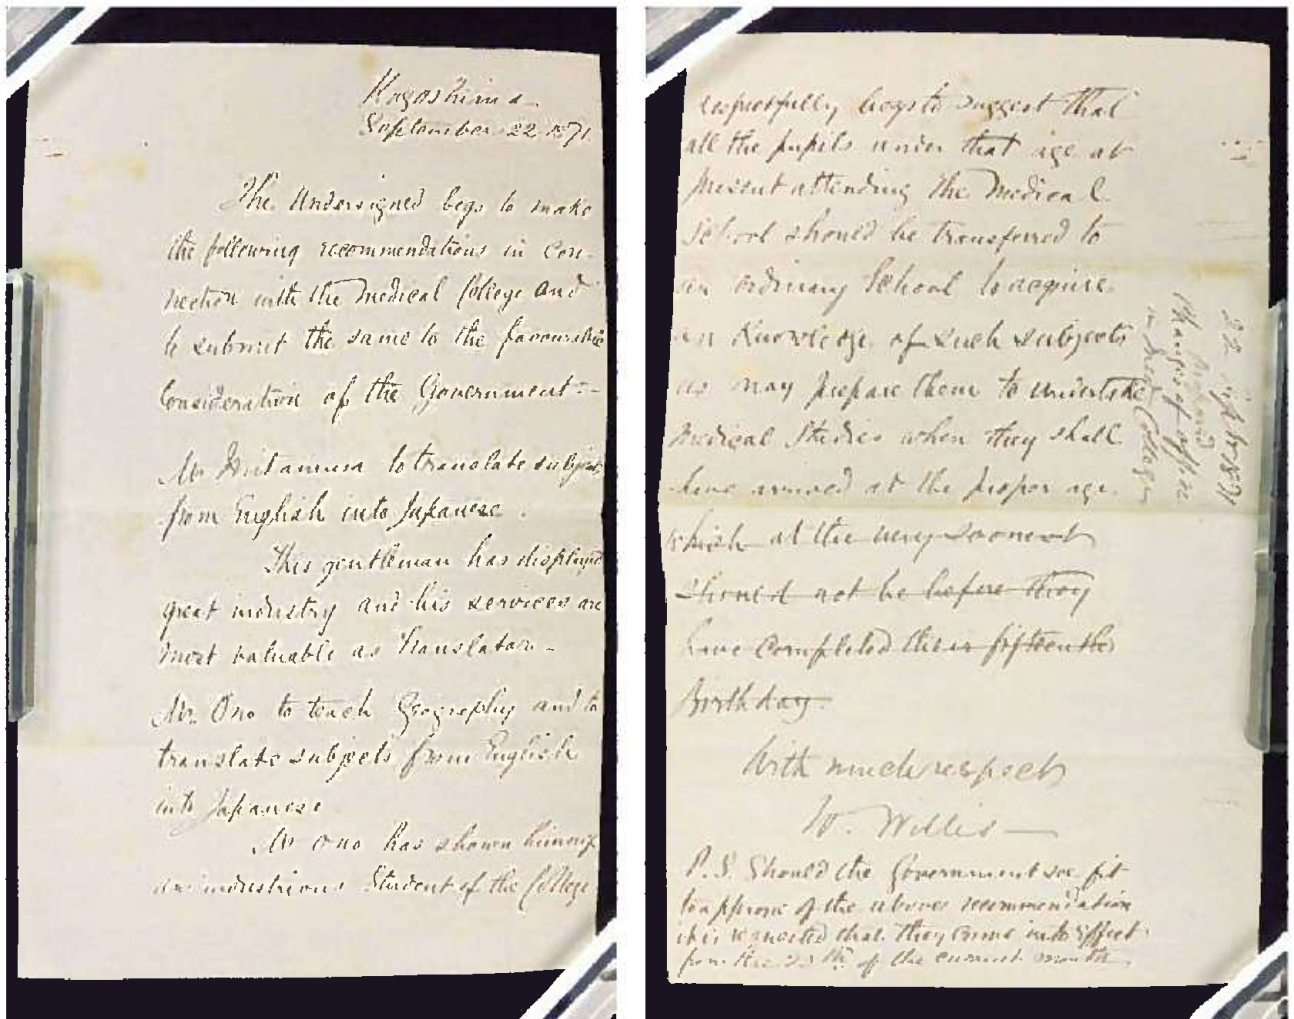 Kagoshima
September 22 1871.
The Undersigned begs to make
the following recommendations in con-
nection with the Medical College and
to submit the same to the favourable
Consideration of the Government:-
Mr to translate subjects
from English into Japanese.
This gentleman has displayed
great industry and his services are
most valuable as Translator-
Mr. Ono to teach Geography and to
translate subjects from English
into Japanese
Mr Ono has shown himself
an industrious Student of the College
respectfully begs to suggest that
all the pupils under that age at
present attending the Medical
School should be transferred to
an ordinary School to acquire
an Knowledge of such subjects
as may prepare them to undertake
Medical Studies when they shall
have arrived at the proper age.
which at the very soonest
should not be before they
have completed their fifteenth
Birthday.
With much respect
W. Willis
P.S. Should the Government see fit
to approve of the above recommendation
it is requested that they come into effect
from the of the current month
22 1871
Changes of office
in Med College